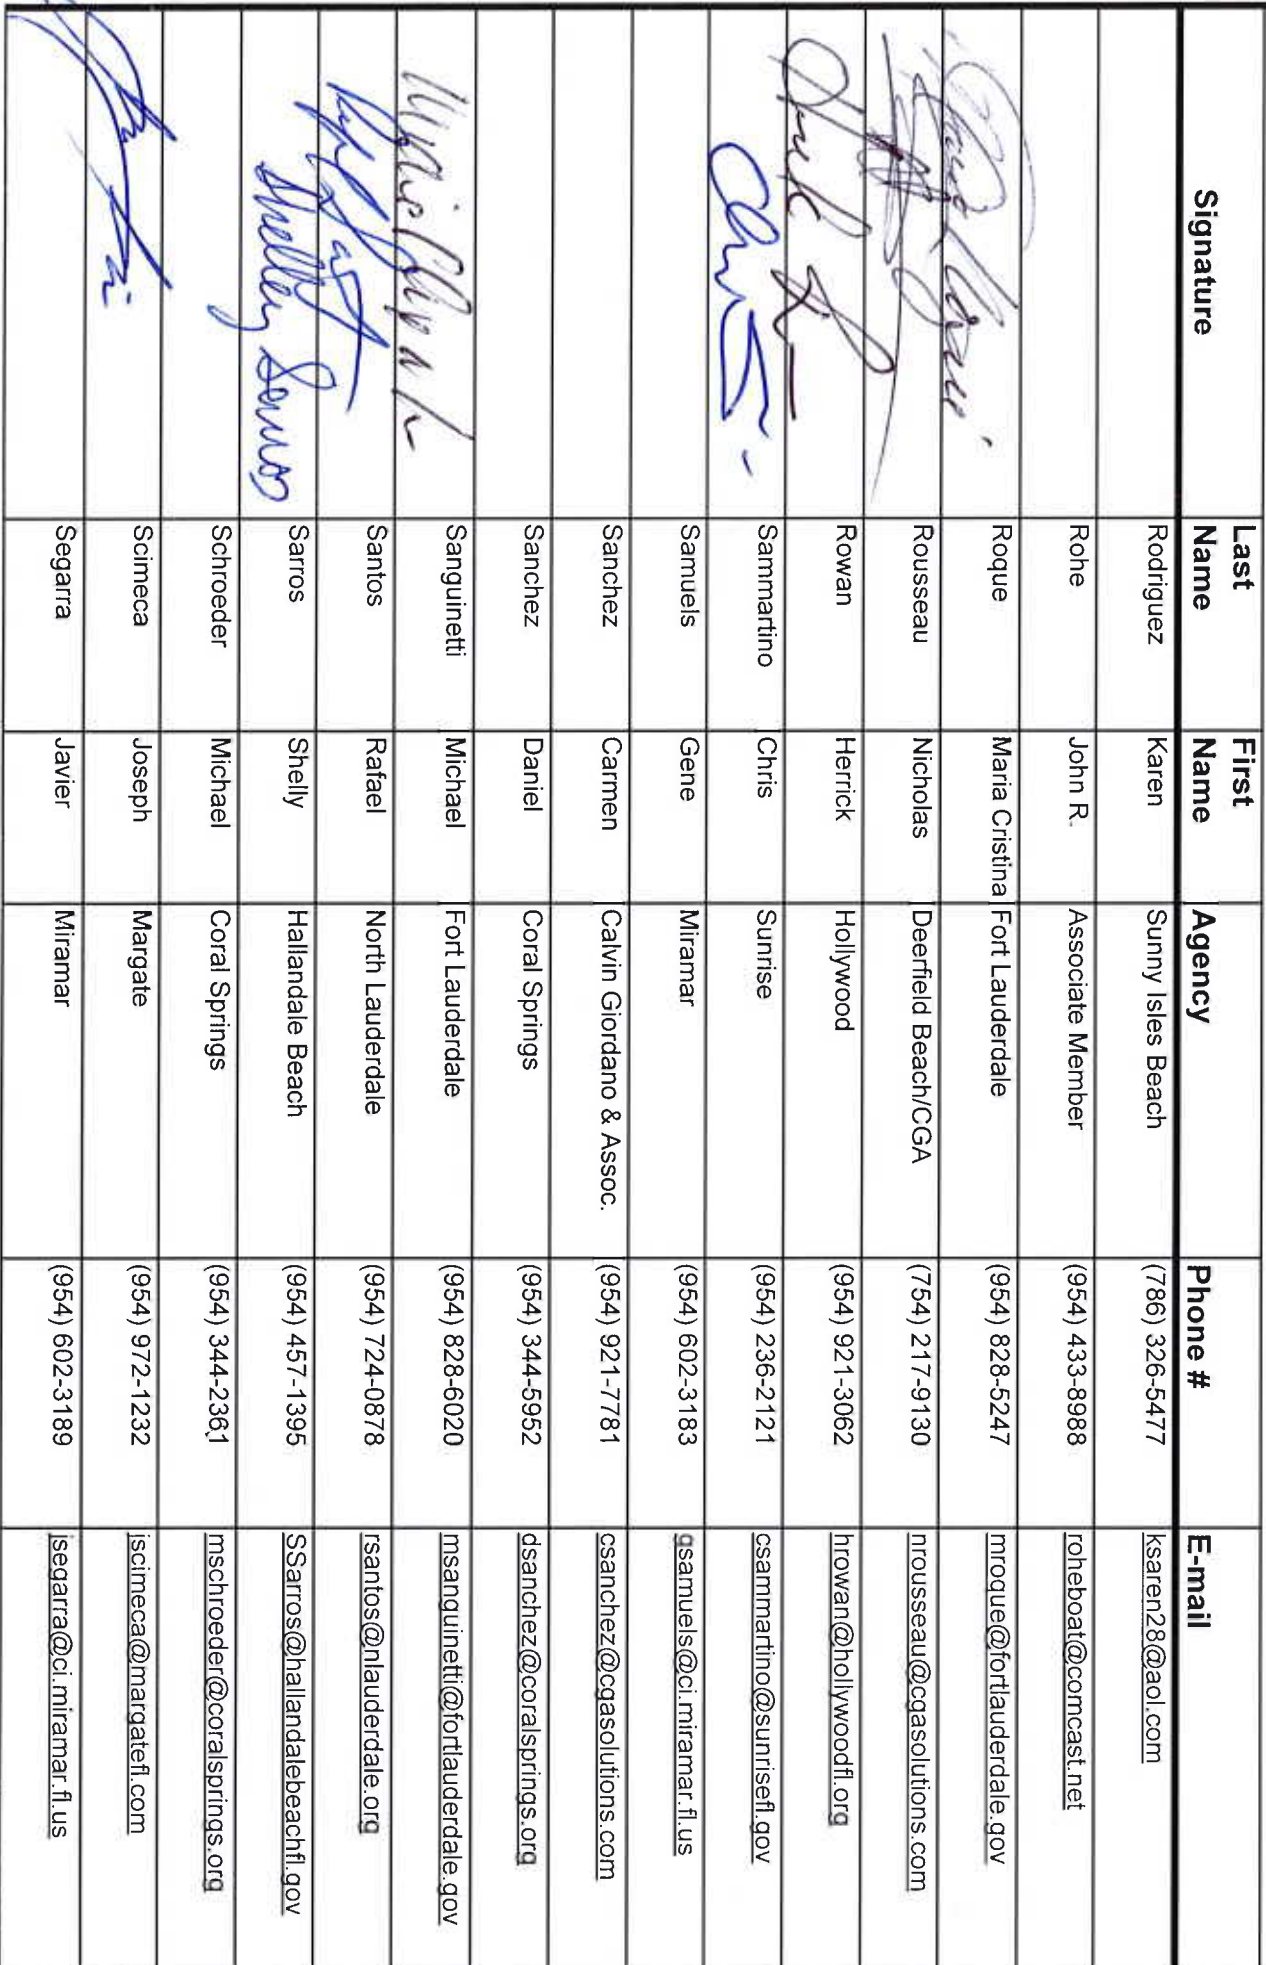 Signature Last Name First Name Agency Phone # E-mail
Rodriguez Karen Sunny Isles Beach (786) 326-5477 ksaren28@aol.com
Rohe John R. Associate Member (954) 433-8988 roheboat@comcast.net
Roque Maria Cristina Fort Lauderdale (954) 828-5247 mroque@fortlauderdale.gov
Rousseau Nicholas Deerfield Beach/CGA (754) 217-9130 nrousseau@cgasolutions.com
Rowan Herrick Hollywood (954) 921-3062 hrowan@hollywoodfl.org
Sammartino Chris Sunrise (954) 236-2121 csammartino@sunrisefl.gov
Samuels Gene Miramar (954) 602-3183 gsamuels@ci.miramar.fl.us
Sanchez Carmen Calvin Giordano & Assoc. (954) 921-7781 csanchez@cgasolutions.com
Sanchez Daniel Coral Springs (954) 344-5952 dsanchez@coralsprings.org
Sanguinetti Michael Fort Lauderdale (954) 828-6020 msanguinetti@fortlauderdale.gov
Santos Rafael North Lauderdale (954) 724-0878 rsantos@nlauderdale.org
Shelley Sarros Sarros Shelly Hallandale Beach (954) 457-1395 SSarros@hallandalebeachfl.gov
Schroeder Michael Coral Springs (954) 344-2361 mschroeder@coralsprings.org
Scimeca Joseph Margate (954) 972-1232 jscimeca@margatefl.com
Segarra Javier Miramar (954) 602-3189 jsegarra@ci.miramar.fl.us